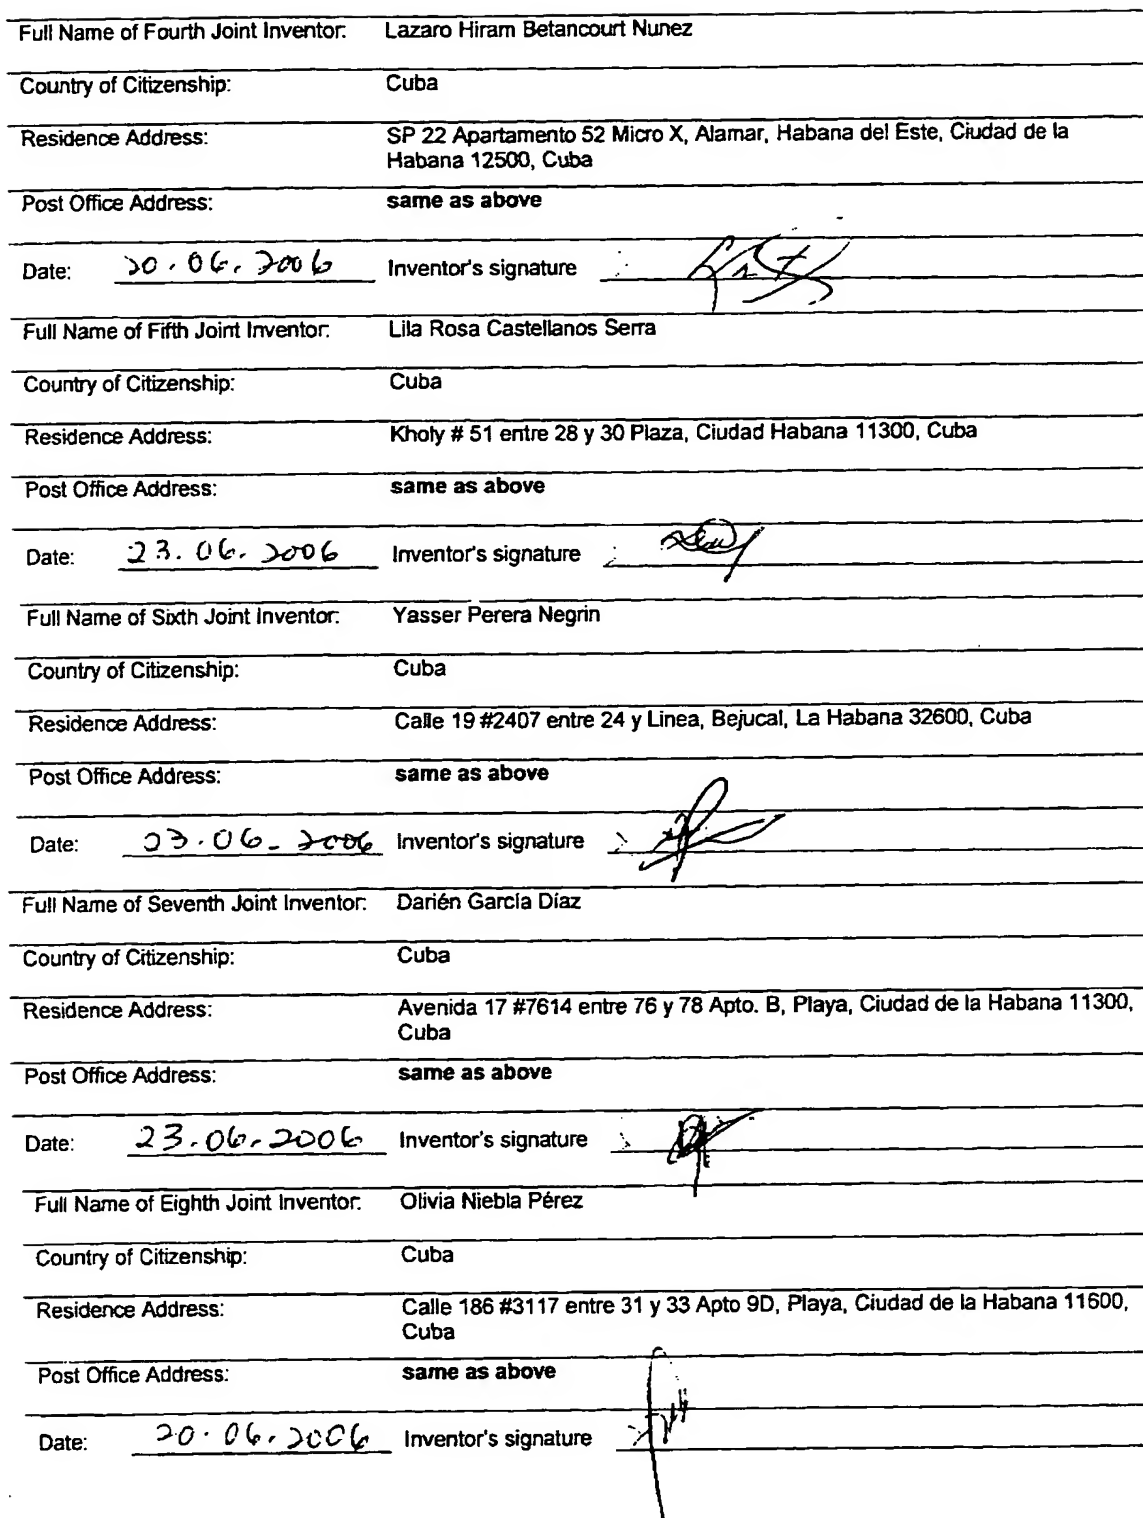 Full Name of Fourth Joint Inventor: Lazaro Hiram Betancourt Nunez
Country of Citizenship: Cuba
Residence Address: SP 22 Apartamento 52 Micro X, Alamar, Habana del Este, Ciudad de la
Habana 12500, Cuba
Post Office Address: same as above
Date: 20.06.2006 Inventor's signature
Full Name of Fifth Joint Inventor: Lila Rosa Castellanos Serra
Country of Citizenship: Cuba
Residence Address: Kholy # 51 entre 28 y 30 Plaza, Ciudad Habana 11300, Cuba
Post Office Address: same as above
Date: 23.06.2006 Inventor's signature
Full Name of Sixth Joint Inventor: Yasser Perera Negrin
Country of Citizenship: Cuba
Residence Address: Calle 19 #2407 entre 24 y Linea, Bejucal, La Habana 32600, Cuba
Post Office Address: same as above
Date: 23.06.2006 Inventor's signature
Full Name of Seventh Joint Inventor: Darién García Díaz
Country of Citizenship: Cuba
Residence Address: Avenida 17 #7614 entre 76 y 78 Apto. B, Playa, Ciudad de la Habana 11300,
Cuba
Post Office Address: same as above
Date: 23.06.2006 Inventor's signature
Full Name of Eighth Joint Inventor: Olivia Niebla Pérez
Country of Citizenship: Cuba
Residence Address: Calle 186 #3117 entre 31 y 33 Apto 9D, Playa, Ciudad de la Habana 11600,
Cuba
Post Office Address: same as above
Date: 20.06.2006 Inventor's signature